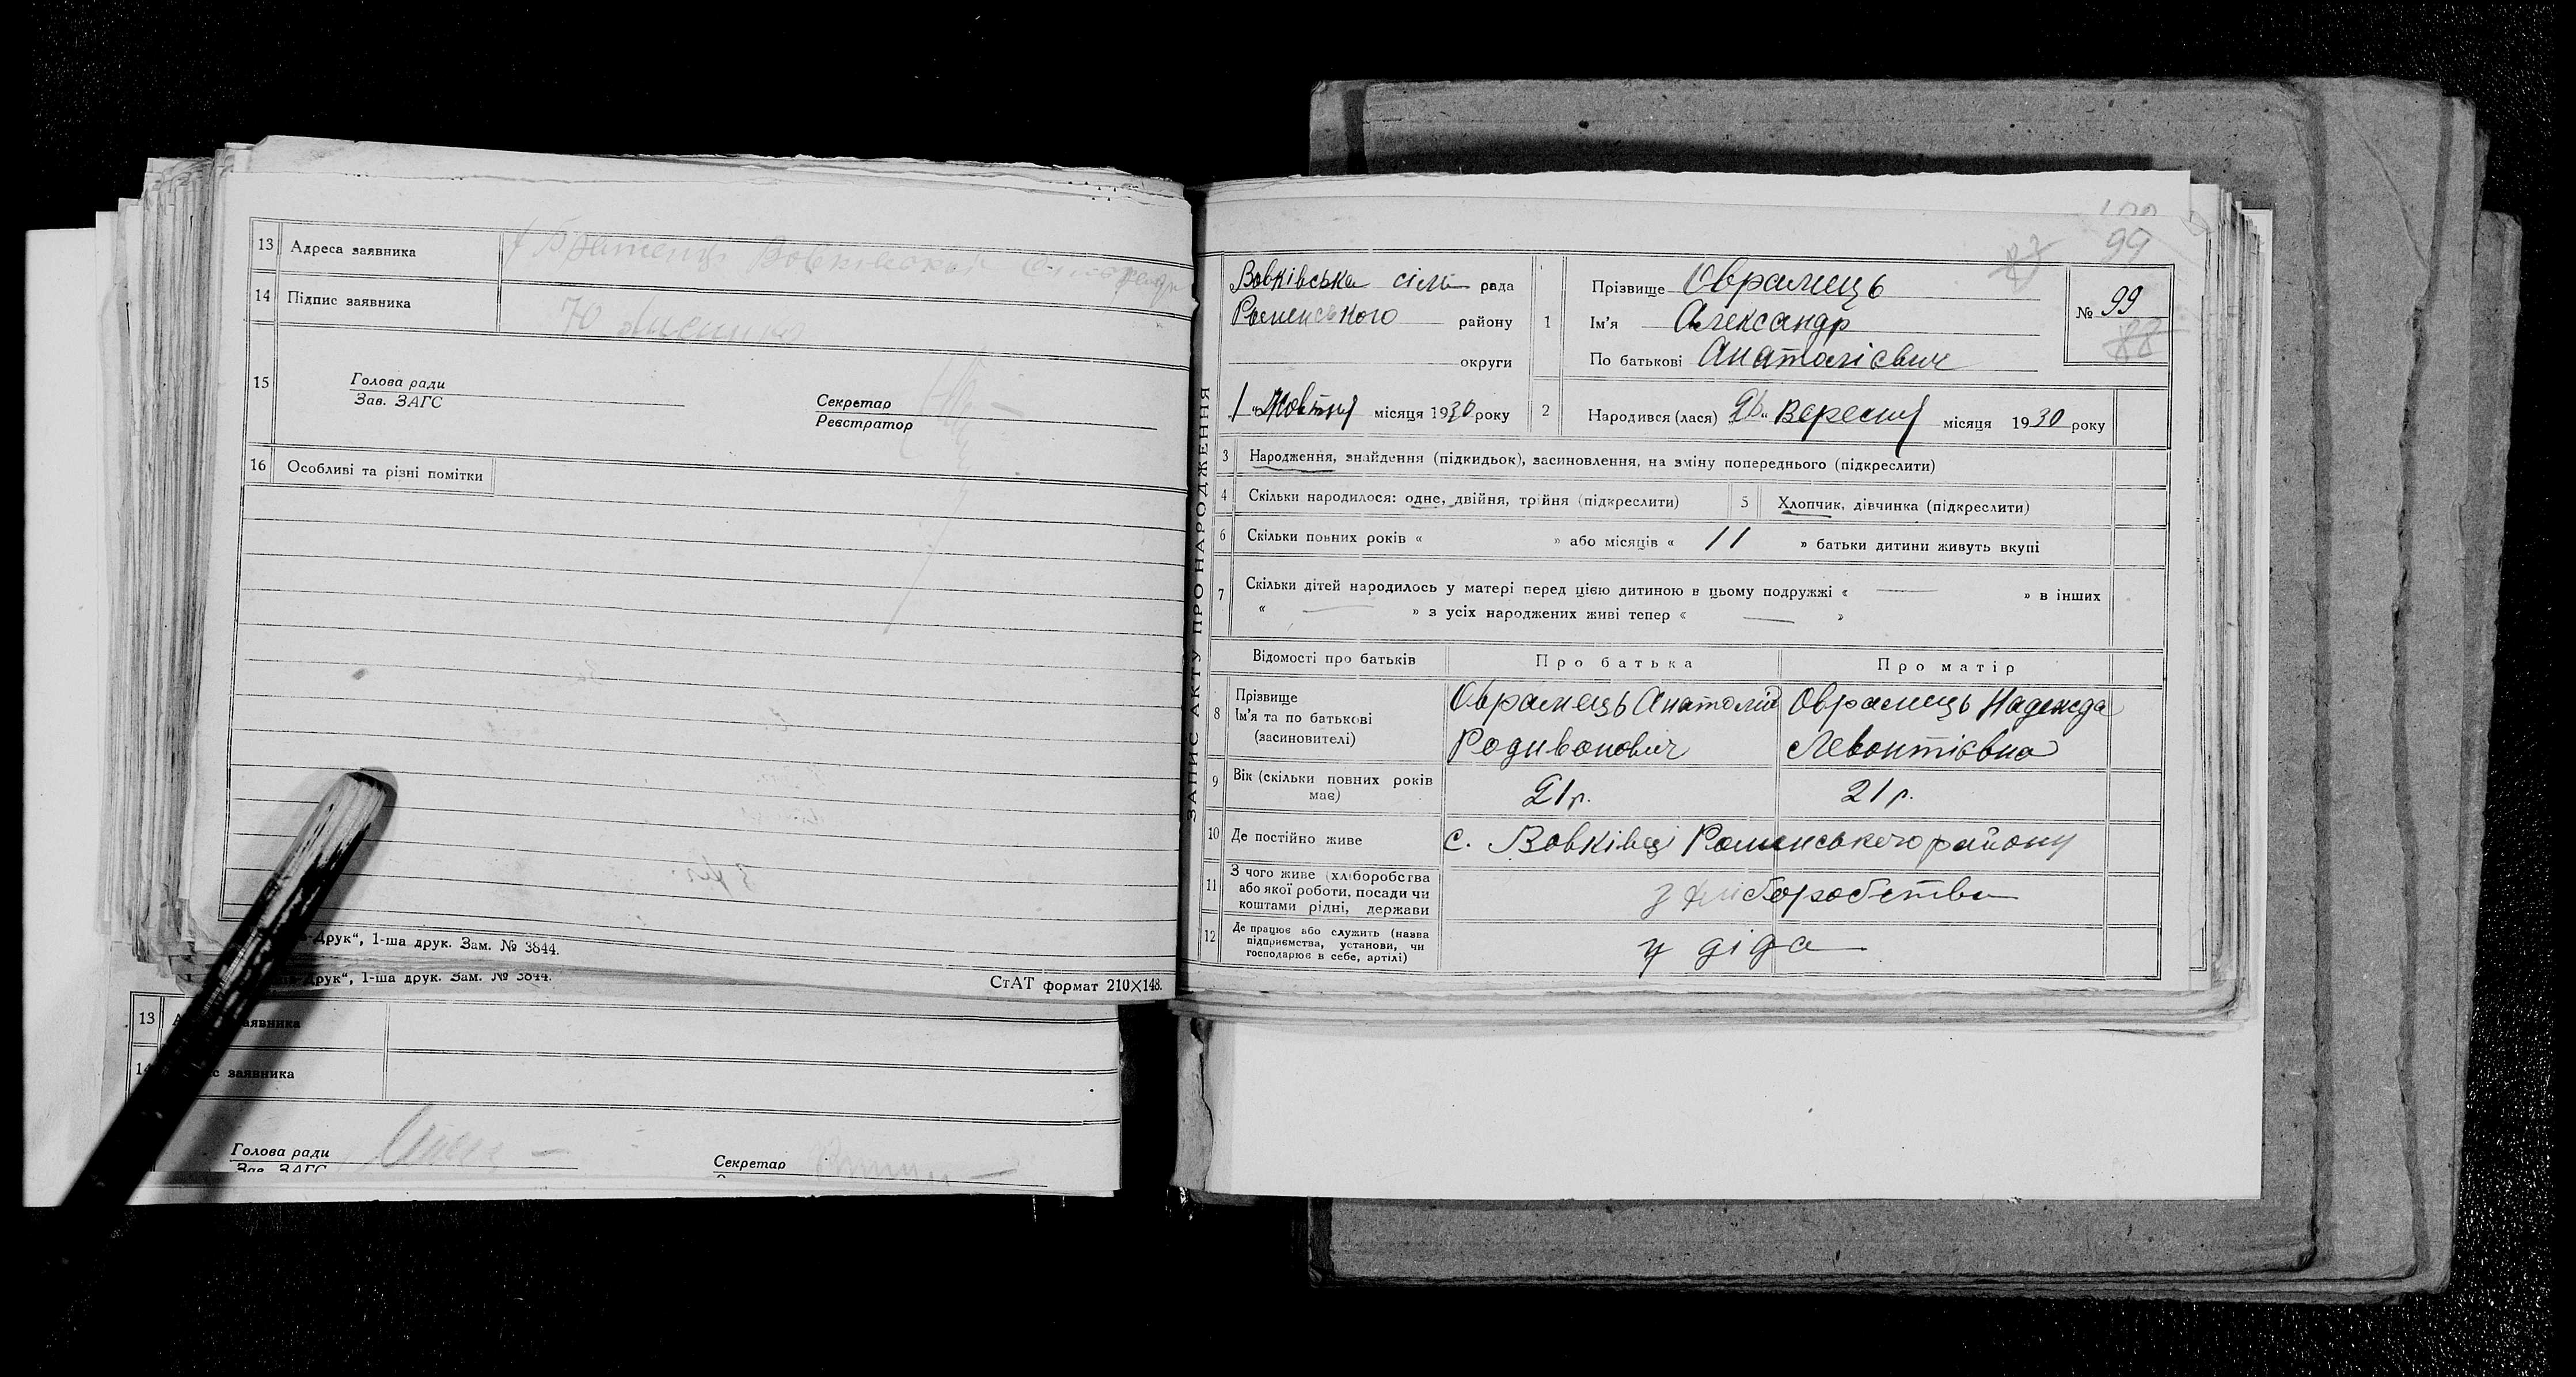 13 Адреса заявника
14 Підпис заявника
15 Голова ради
Зав. ЗАГС
Секретар
Реєстратор
16 Особливі та різні помітки
-Друк“, 1-ша друк. Зам. № 3844.
СтАТ формат 210×148.
друк“, 1-ша друк. Зам. № 3844.
13 заявника
14 заявника
Голова ради
Зав. ЗАГС
Секретар
ЗАПИС АКТУ ПРО НАРОДЖЕННЯ
99
Вовківська сіль рада
Роменського району
округи
1 „Жовтня місяця 1930 року
1 Прізвище Оврамець
Ім’я Александр
По батькові Анатолієвич
№ 99
88
2 Народився (лася) 26 „ Вересня місяця 1930 року
3 Народження, знайдення (підкидьок), засиновлення, на зміну попереднього (підкреслити)
4 Скільки народилося: одне, двійня, трійня (підкреслити) 5 Хлопчик, дівчинка (підкреслити)
6 Скільки повних років « » або місяців « 11 » батьки дитини живуть вкупі
7 Скільки дітей народилось у матері перед цією дитиною в цьому подружжі « — » в інших
« — » з усіх народжених живі тепер « — »
Відомості про батьків Про батька Про матір
8 Прізвище
Ім’я та по батькові
(засиновителі)
Оврамець Анатолій
Родивонович
Оврамець Надежда
Левонтієвна
9 Вік (скільки повних років
має)
21 р. 21 р.
10 Де постійно живе с. Вовківці Роменського району
11 З чого живе (хліборобства
або якої роботи, посади чи
коштами рідні, держави
з хліборобства
12 Де працює або служить (назва
підприємства, установи, чи
господарює в себе, артілі)
у діда